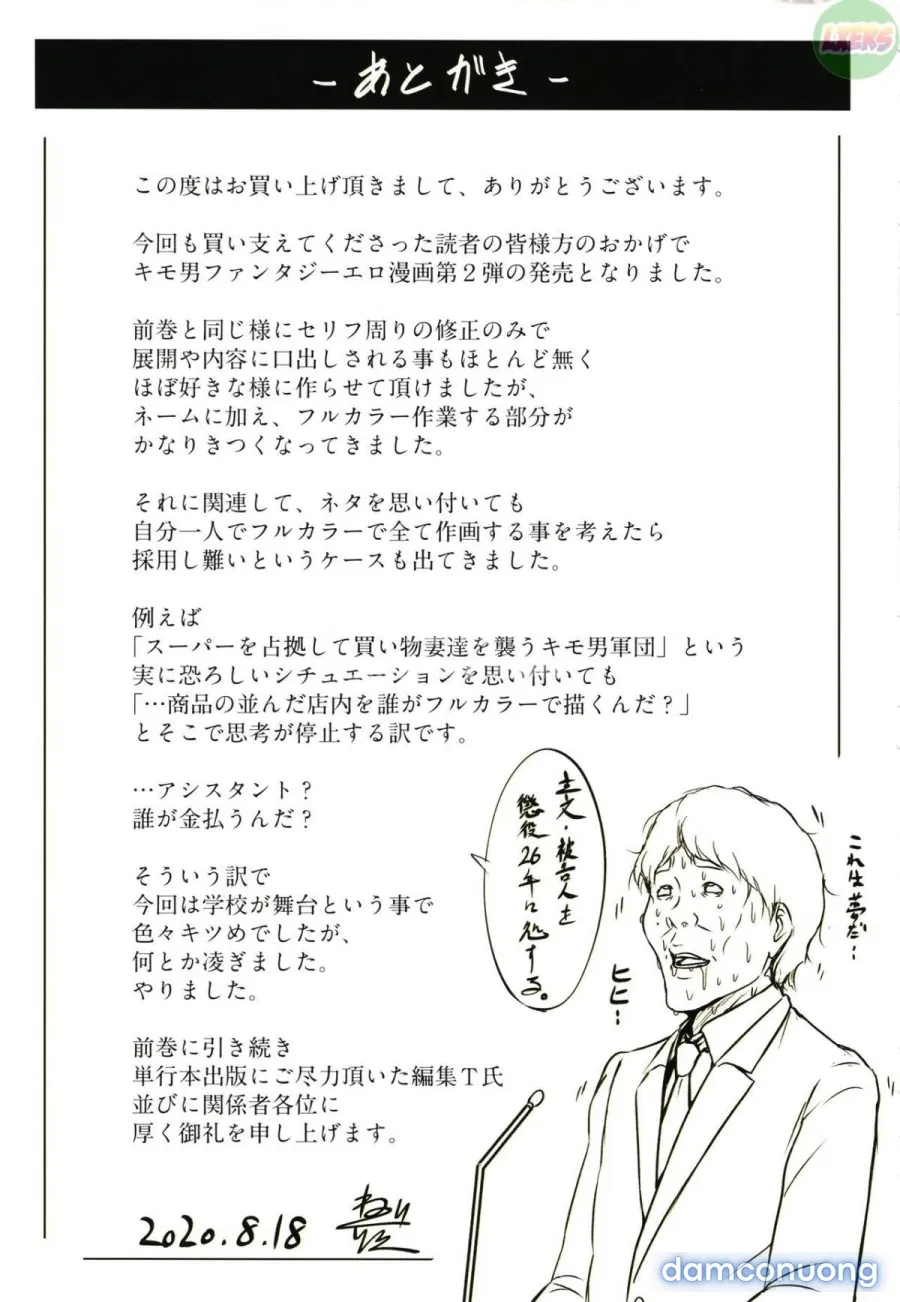 LXERS
－あとがき－
この度はお買い上げ頂きまして、ありがとうございます。
今回も買い支えてくださった読者の皆様方のおかげで
キモ男ファンタジーエロ漫画第２弾の発売となりました。
前巻と同じ様にセリフ周りの修正のみで
展開や内容に口出しされる事もほとんど無く
ほぼ好きな様に作らせて頂けましたが、
ネームに加え、フルカラー作業する部分が
かなりきつくなってきました。
それに関連して、ネタを思い付いても
自分一人でフルカラーで全て作画する事を考えたら
採用し難いというケースも出てきました。
例えば
「スーパーを占拠して買い物妻達を襲うキモ男軍団」という
実に恐ろしいシチュエーションを思い付いても
「…商品の並んだ店内を誰がフルカラーで描くんだ？」
とそこで思考が停止する訳です。
…アシスタント？
誰が金払うんだ？
そういう訳で
今回は学校が舞台という事で
色々キツめでしたが、
何とか凌ぎました。
やりました。
前巻に引き続き
単行本出版にご尽力頂いた編集Ｔ氏
並びに関係者各位に
厚く御礼を申し上げます。
主文・被告人を
懲役26年に処する。
これは夢だ…
ヒヒ…
2020.8.18
damconuong